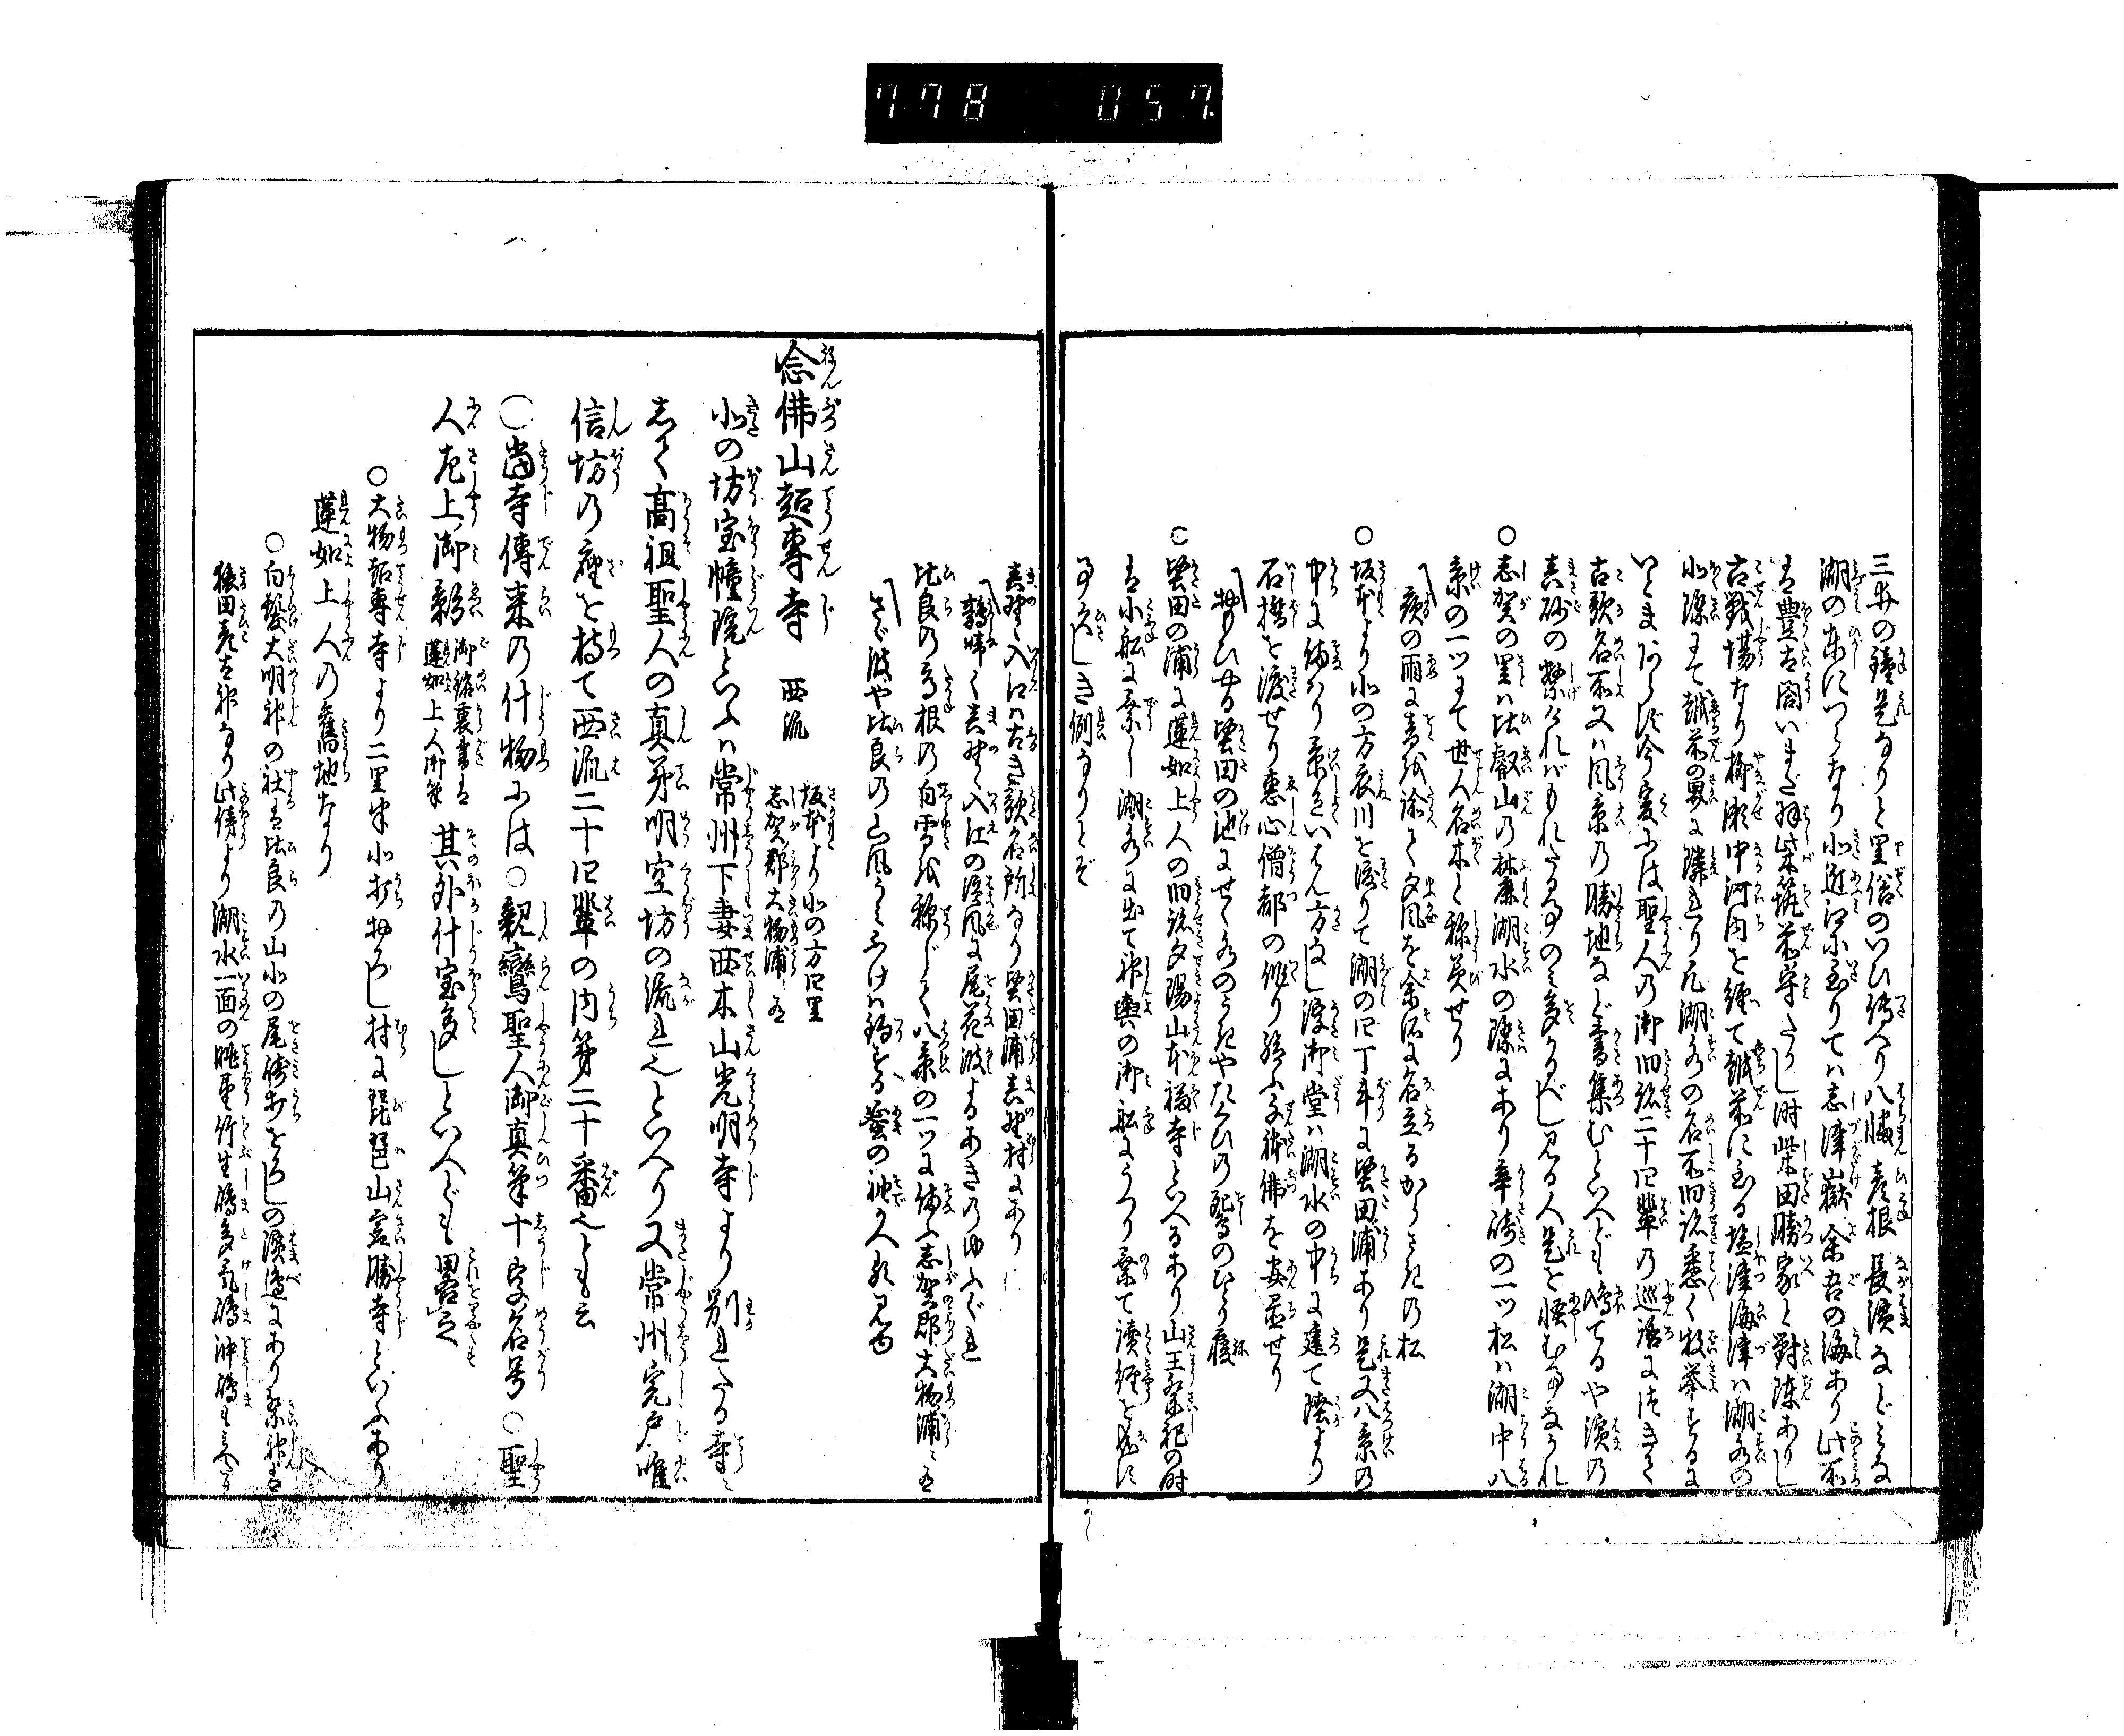 778 057
三井の鐘是なりと里俗のいひ傳へり八幡彦根長濱などみな
湖の東につらなり北近江に至りては志津嶽余吾の海あり此所
は豊太閤いまだ羽柴筑前守たりし時柴田勝家と對陣ありし
古戰場なり柳瀬中河内を經て越前に至る塩津海津は湖水の
北際にて越前の界に隣れり凡湖水の名所旧跡悉く枚挙するに
いとまあらず今爰には聖人の御旧跡二十四輩の巡路にしたがひて
古歌名所又は風景の勝地など書集むといへども鳴てるや濱の
真砂の繁ければもれたる事のみ多かるべし見る人是を怪むことなかれ
○志賀の里は比叡山の林麓湖水の際にあり辛崎の一ツ松は湖中八
景の一ツにて世人名木と称美せり
夜の雨に音を譲りて夕風を余所に名立るからさきの松
○坂本より北の方衣川を渡りて湖の四丁斗に堅田浦あり是又八景の
中に備はり景色いはん方なし浮御堂は湖水の中に建て際より
石橋を渡せり惠心僧都の作り給ふ千体佛を安置せり
○堅田の浦に蓮如上人の旧跡夕陽山本福寺といへるあり山王祭祀の時
は小船に乗し湖水に出て神輿の御船にうつり乗て讀經を成に
事久しき例なりとぞ
真野入江は古き歌名所なり堅田浦真野村にあり
鶉啼く真野の入江の濱風に尾花波よるあきのゆふぐれ
比良の高根の白雪を称じて八景の一つに備ふ志賀郡大物浦ニ有
さゞ波や比良の山風うみふけば釣する蜑の袖かへる見ゆ
念佛山超專寺 西派 坂本より北の方四里 志賀郡大物浦ニ有
北の坊宝幢院といふは常州下妻西木山光明寺より別れたる寺ニ
して高祖聖人の真弟明空坊の流れ也といへり又常州宍戸唯
信坊の座を持て西派二十四輩の内第二十番也とも云
○當寺傳來の什物には○親鸞聖人御真筆十字名号○聖
人左上御影 御銘裏書は 蓮如上人御筆 其外什宝多しといへども畧之
○大物超專寺より二里半北打おろし村に琵琶山宮勝寺といふあり
蓮如上人の舊地なり
○白鬚大明神の社は比良の山北の尾崎打をろしの濱邊にあり祭神は
猿田彦太神なり此傍より湖水一面の眺望竹生嶋多景嶋沖嶋もミへたり